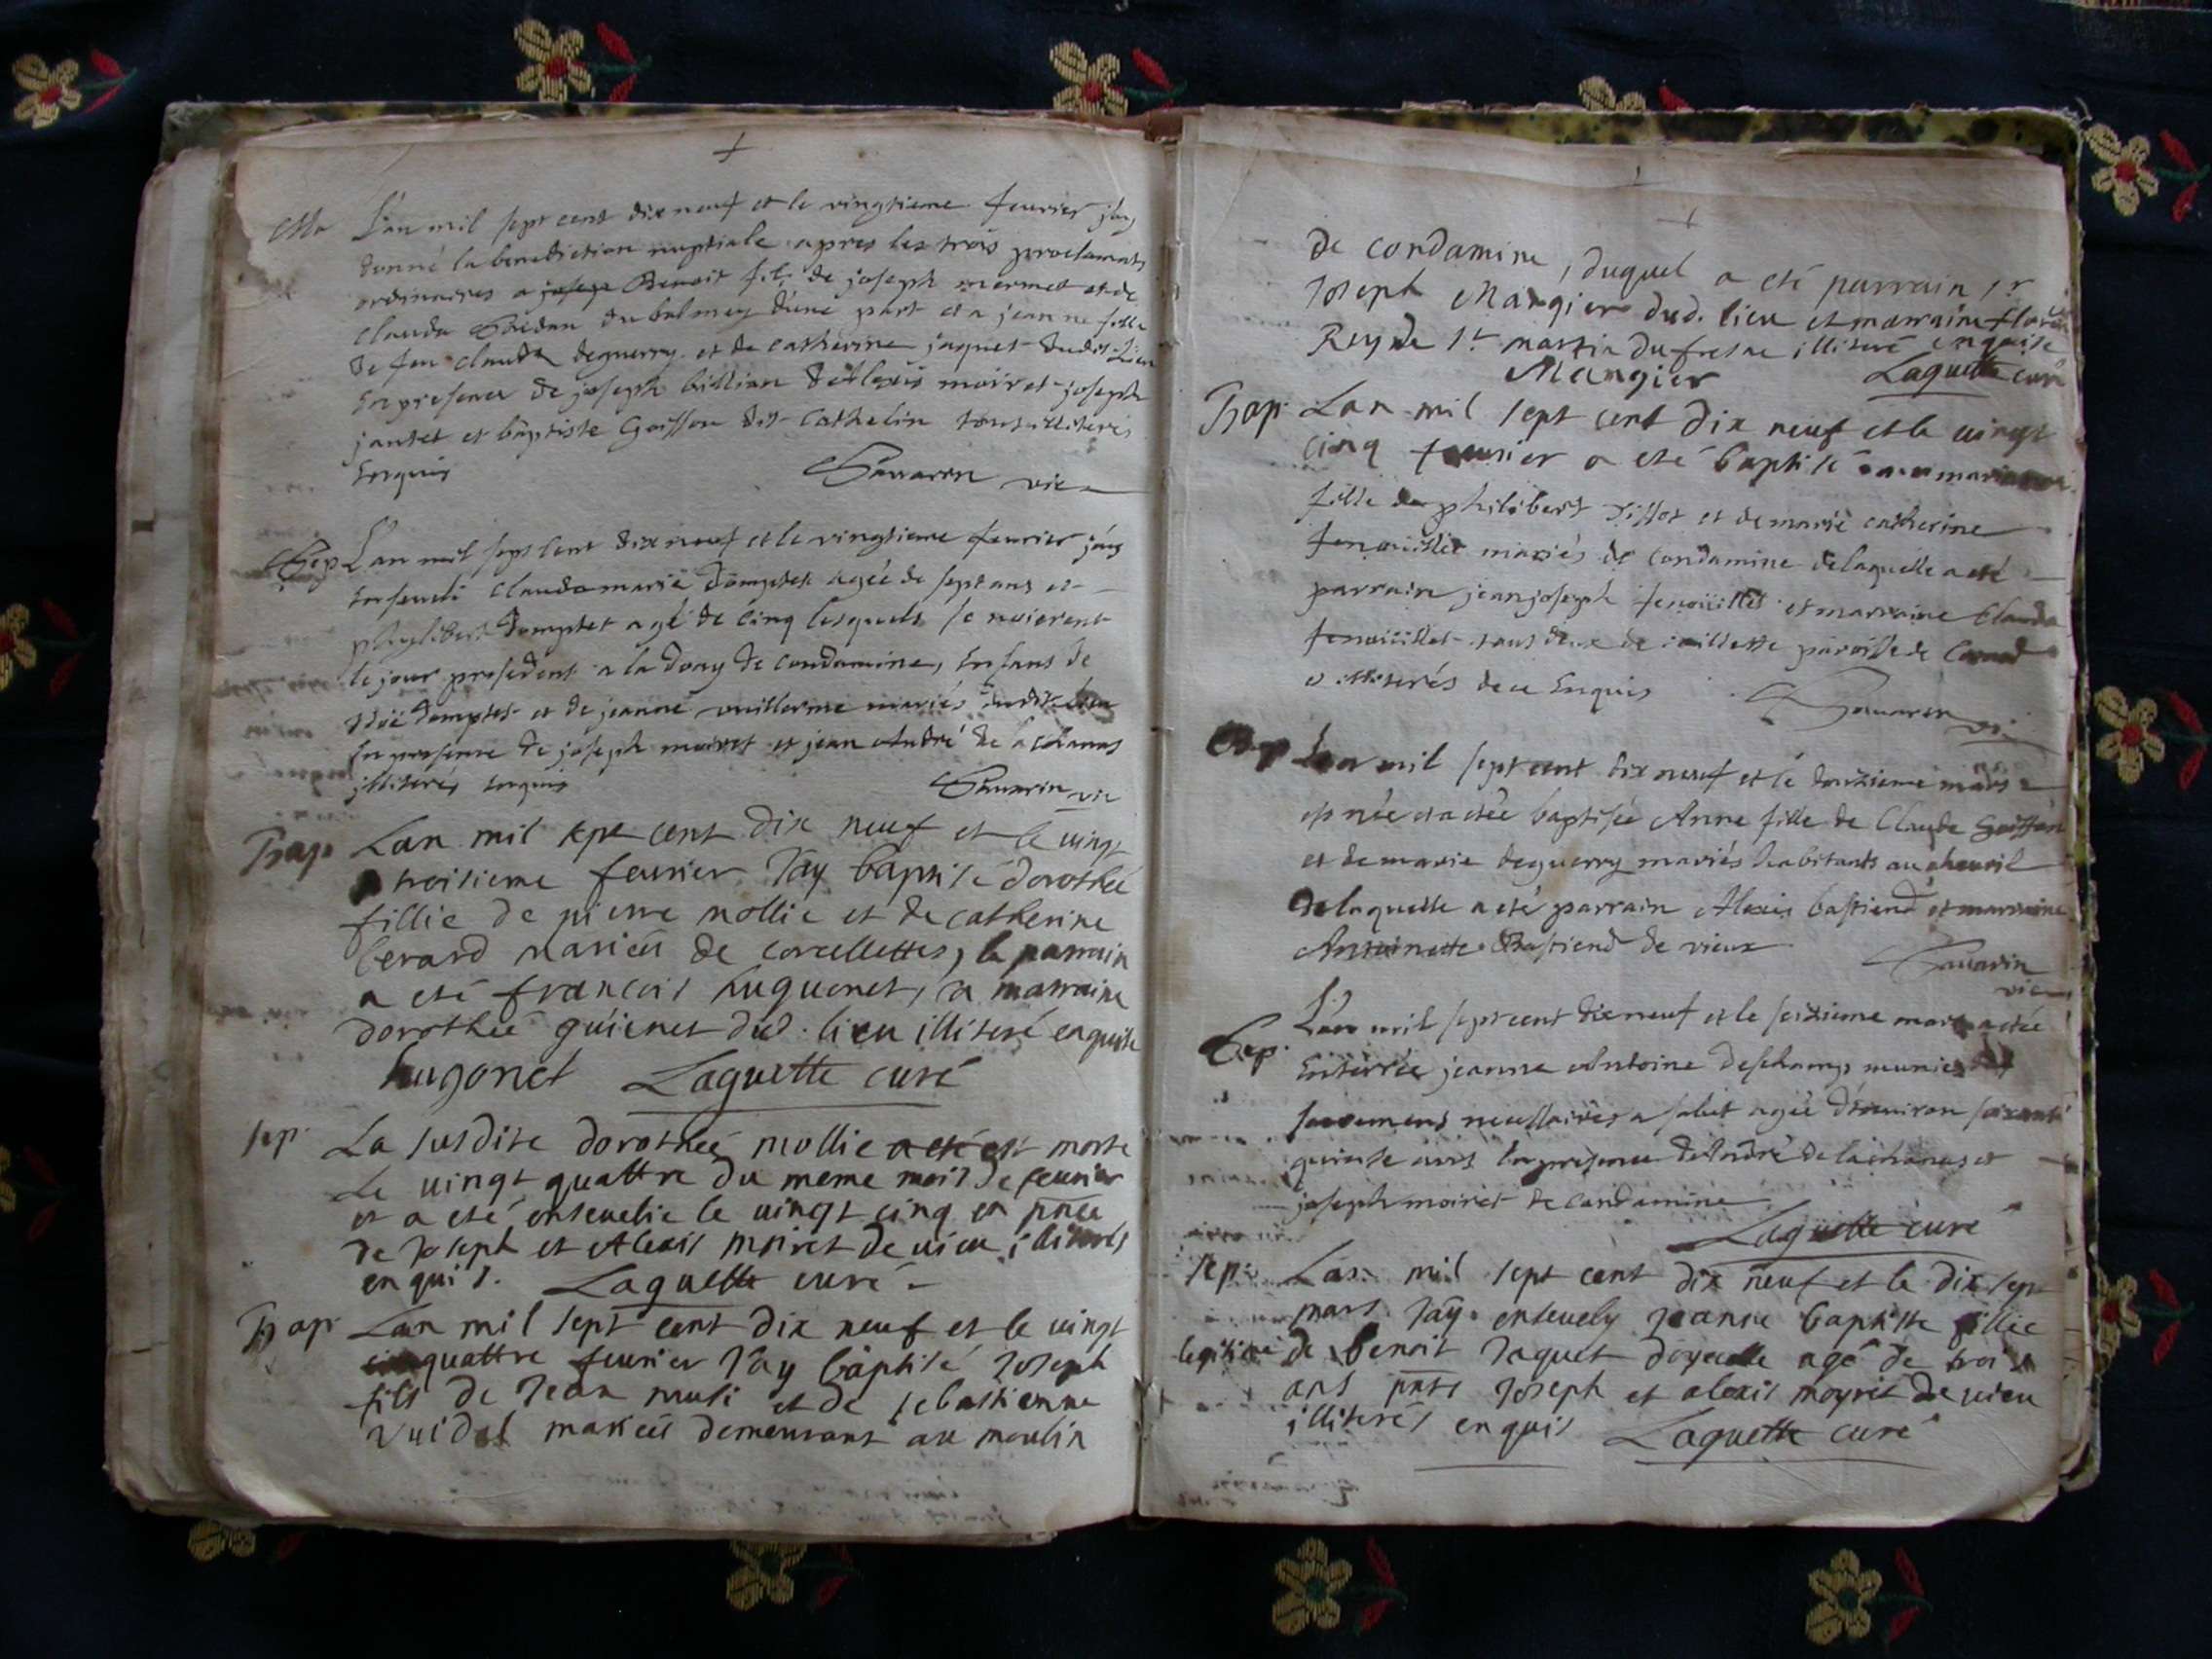 Ma L'an mil sept cent dix neuf et le vingtieme feurier jay
donné la benediction nuptiale apres les trois proclamats
ordinaires a joseph Benoit fils de joseph mermet et de
clauda du balmey d'une part et a jeanne fille
de feu claude deguerry et de catherine jaquet dudit Lieu
En presence de joseph billian de Alexis moiret joseph
jantet et baptiste Goiffon dit Cathelin tous illiteres
Enquis Sauarin vic
Sep L'an mil sept cent dix neuf et le vingtieme feurier jay
Enseueli claudamarie domptet agée de sept ans et
philibert domptet agé de cinq lesquels se noierent
le jour presedent a la doay de condamine, Enfans de
domptet et de jeanne vuillerme mariés dudit lieu
En presence de joseph moiret et jean André de la chanas
illiterés Enquis Sauarin vic
Bap. Lan mil sept cent dix neuf et le uingt
troisieme feurier Jay baptisé dorothée
fillie de pierre mollie et de catherine
berard mariés de corcellettes, le parrain
a eté francois huguonet, la marraine
dorothée guienet dud. lieu illiteré enquise
hugonet Laguette curé
sep. La susdite dorothée mollie a eté est morte
Le uingt quattre du meme mois de feurier
et a eté enseuelie le uingt cinq en pnce
de Joseph et Alexis moiret de uieu illiterés
enquis. Laguette curé
Bap. Lan mil sept cent dix neuf et le uingt
quattre feurier Jay baptisé Joseph
fils de Jean et de sebastienne
Vuidal mariés demeurant au moulin
de condamine, duquel a eté parrain sr
Joseph Mangier dud. lieu et marraine
Rey de st martin du fresne illiteré enquise
Mangier Laguette curé
Bap. Lan mil sept cent dix neuf et le uingt
cinq feurier a eté baptisé
fille de philibert tissot et de marie catherine
fenouillet mariés de Condamine delaquelle a eté
parrain jean joseph fenoüillet et marraine Clauda
fenoüillet tous deux de paroisse de
illiterés de ce Enquis Sauarin vi
Bap Lan mil sept cent dix neuf et le douzieme mars
est née et a etée baptisée Anne fille de Claude Goiffon
et de marie deguerry mariés habitants au cheuril
delaquelle a eté parrain Alexis bastiend et marraine
Antoinette Bastiend de vieux Sauarin
vic
Sep. L'an mil sept cent dix neuf et le seizieme mars a etée
Enterrée jeanne Antoine deschamps munie des
sacremens necessaires a salut agée d'enuiron soixante
quinse ans En presence de André de la chanas et
joseph moiret de Candamine
Laguette curé
sep. Lan mil sept cent dix neuf et le dix sept
mars Jay enseuely Jeanne baptiste fillie
legitime de benoit Jaquet agé de trois
ans pnts Joseph et alexis moyret de uieu
illiterés enquis Laguette curé